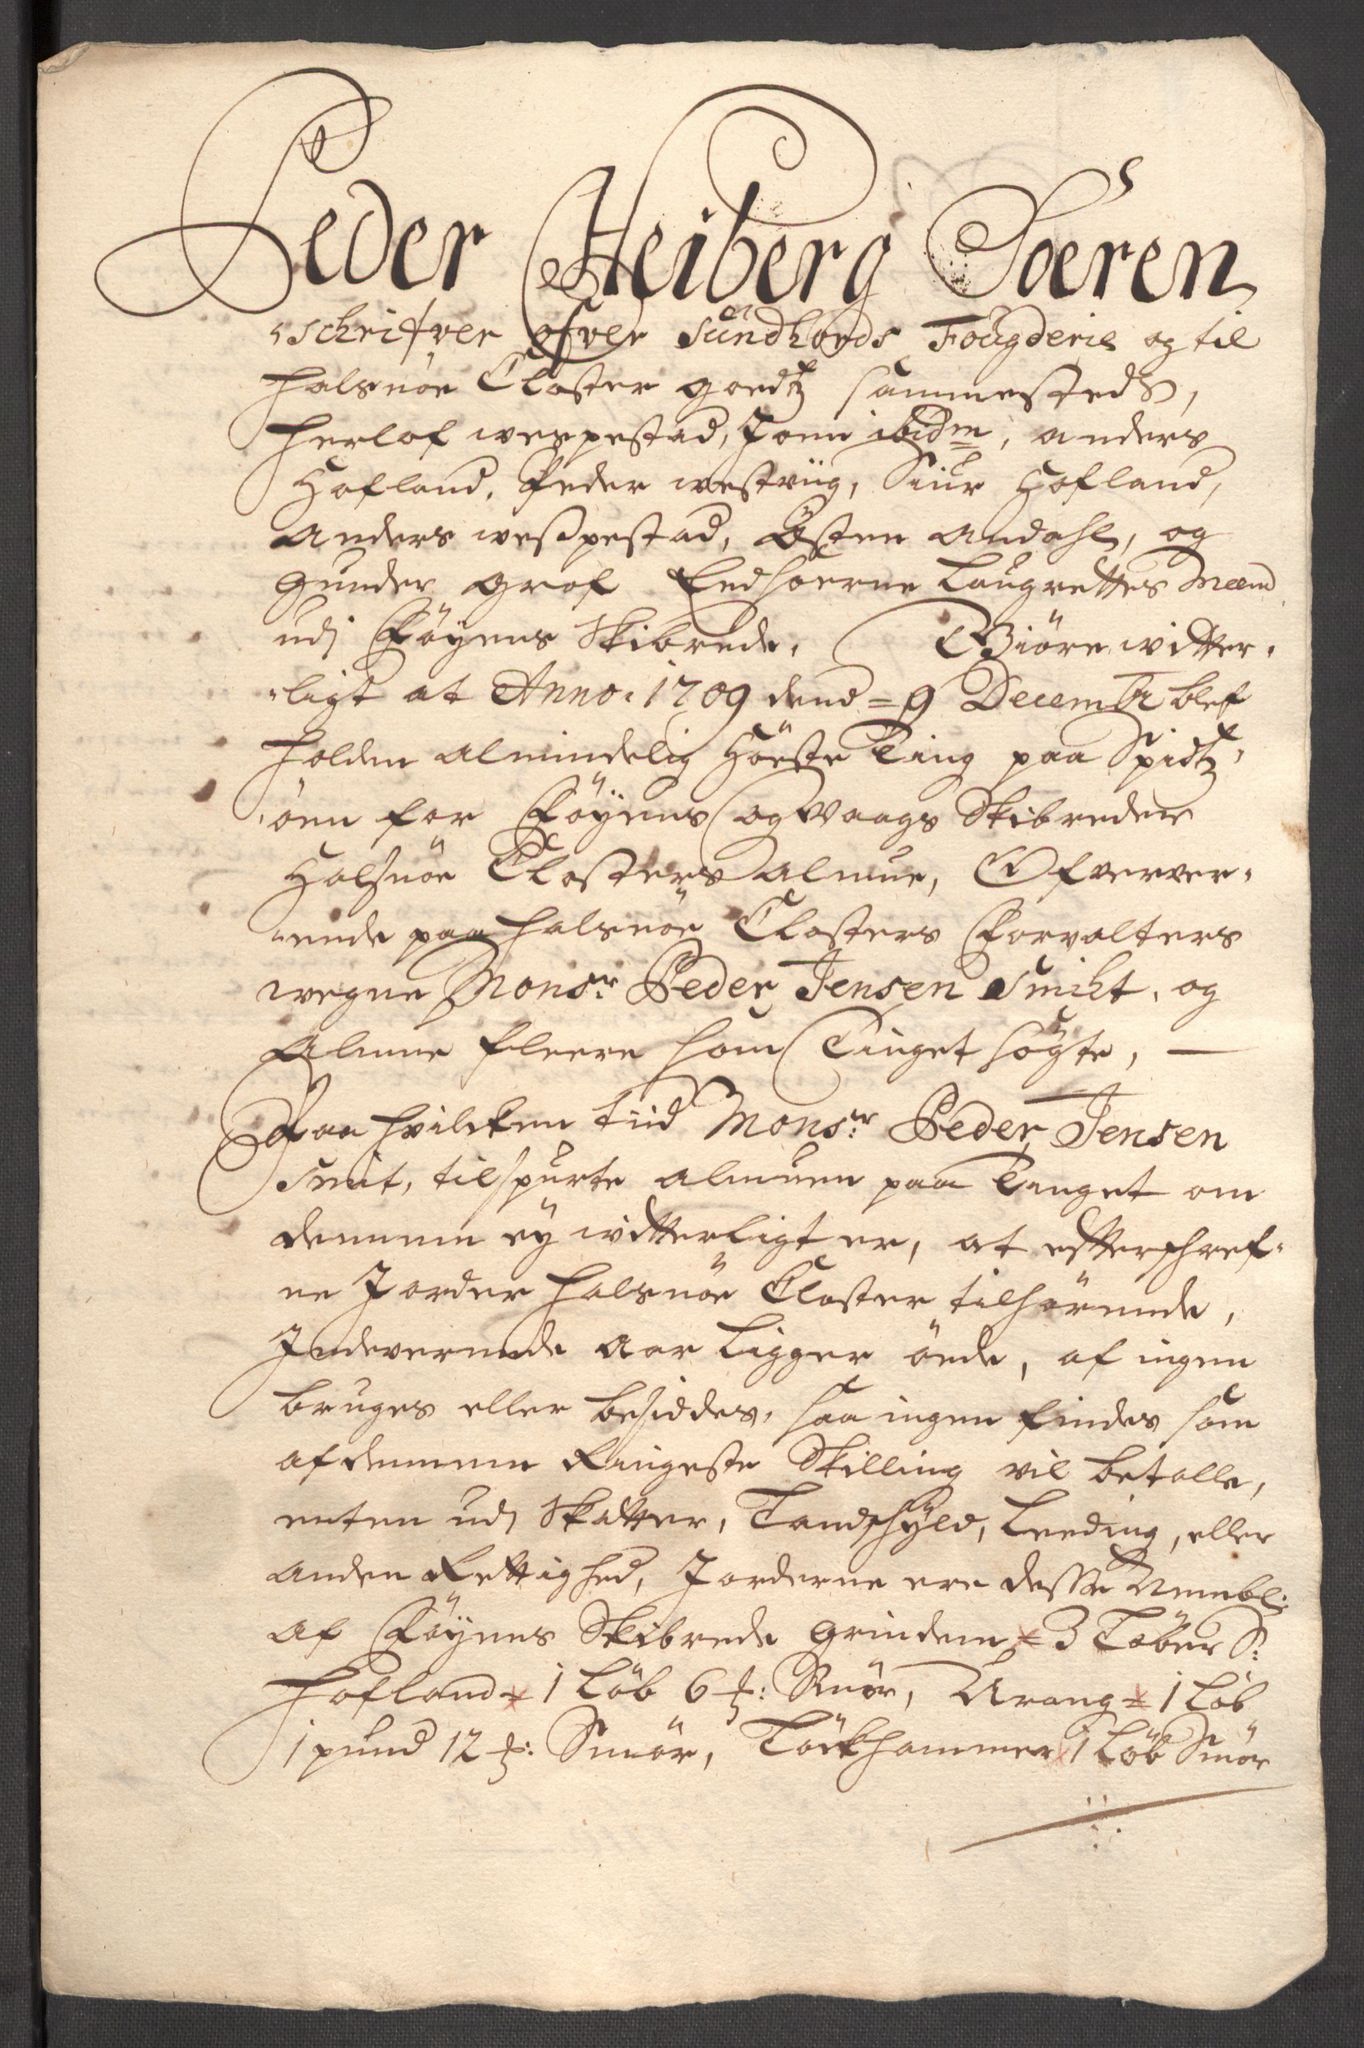 Peder Heiberg Soeren
-schrifver ofver Sundhords Fougderie og til
Halsnöe Closter goedtz sammesteds,
Herlof wespestad, Joen ibidm, anders
Hofland, Peder westviig, Siur Hofland,
Anders wespestad, Östen Andahl, og
Gunder Grof Eedsoerne Laugrettes Meend
udj Föyens Skibrede, Giöre witter-
-ligt at Anno 1709 dend = 9 Decembr blef
holden almindelig Höste Ting paa Spidtz-
-öen for Föyens og Waags Skibreder
Halsnöe Closters Almue, Ofverver-
-ende paa Halsnöe Closters Forvalters
wegne Monsr: Peder Jensen Smiht, og
Almue fleere som Tinget sögte, —
Paa hvilcken tiid Monsr: Peder Jensen
Smit, tilspurte almuen paa Tinget om
dennem ey witterligt er, at efterschref-
ne Jorder Halsnöe Closter tilhörende,
Indeverende Aar ligger öede, af ingen
bruges eller besiddes, saa ingen findes som
af dennem Ringeste Skilling vil betalle,
enten udj Skatter, Landschyld, Leeding, eller
anden Rettighed, Jorderne ere desse Nembl:
Af Föyens Skibrede Grindem = 3 Löber S:
Hofland = 1 Löb 6 ℔: Smör, Urang = 1 Löb
1 pund 12 ℔: Smör, Löckhammer 1 Löb Smör